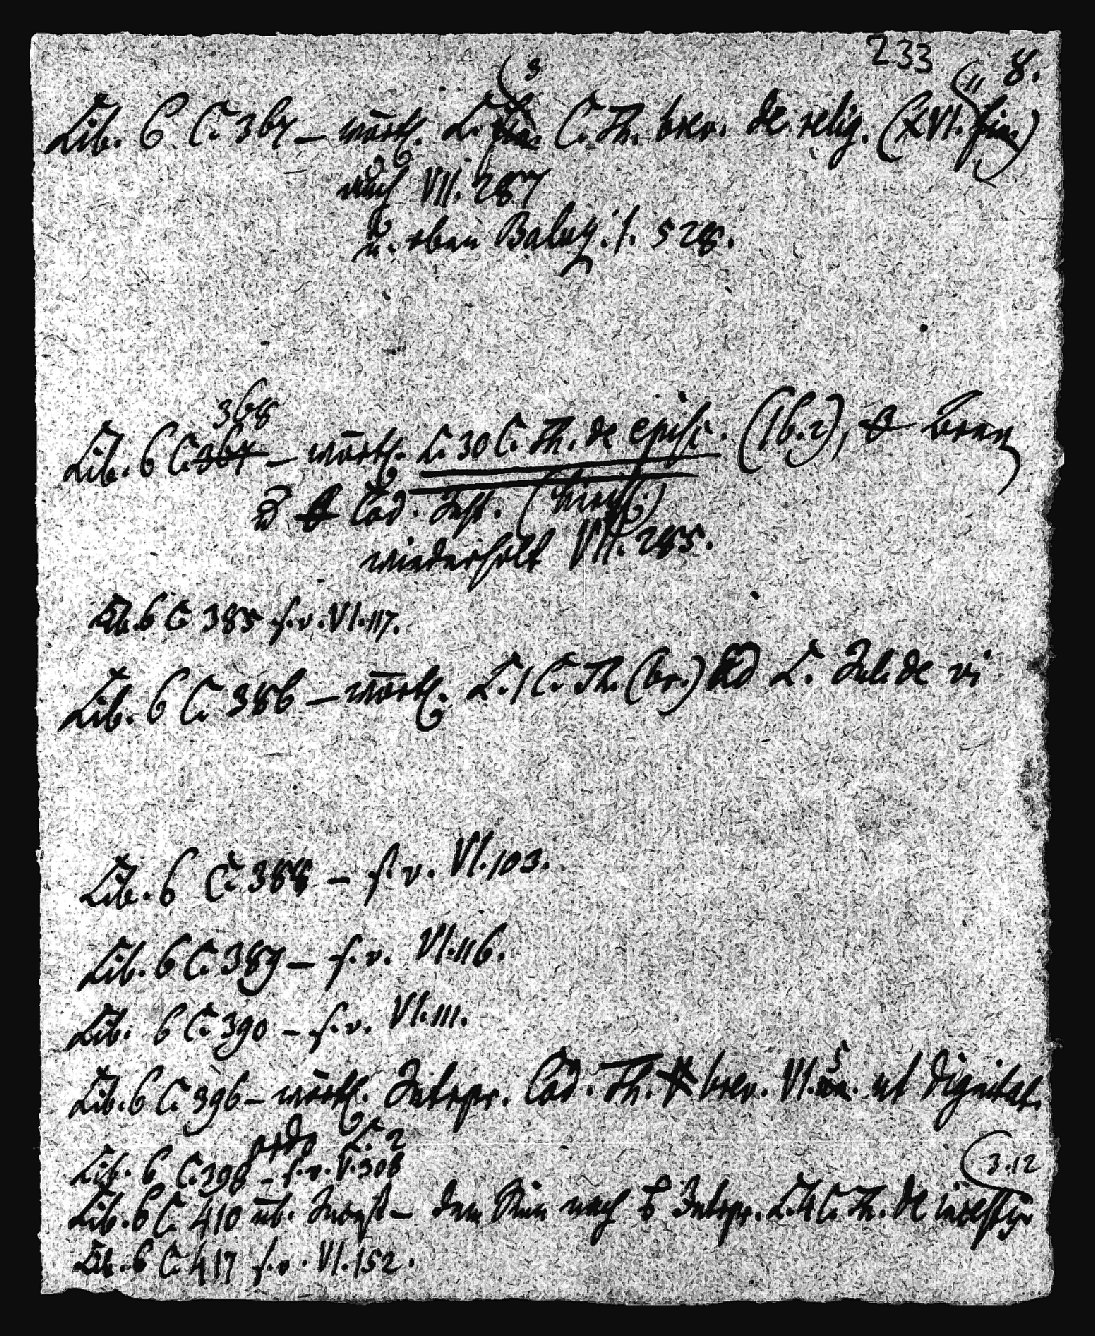 233 8.
Lib. 6 C. 367 – wörtl. L. 3 C. Th. brev. de relig. (XVI. 11)
auch VII. 287
u. eben Baluz. I. 528.
Lib. 6 C. 368 – wörtl. L. 30 C. Th. de episc. (16. 2), brev
Cod. Just. (
wiederholt VII. 285.
Lib. 6 C. 385 s. v. VI. 117.
Lib. 6 C. 386 – wörtl. L. 1 C. Th. (br.) ad L. Jul. de vi
Lib. 6 C. 388 – s. v. VI. 103.
Lib. 6 C. 389 – s. v. VI. 116.
Lib. 6 C. 390 – s. v. VI. 111.
Lib. 6 C. 396 – wörtl. Interpr. Cod. Th. brev. VI. 5. ut dignitat.
ordo L. 2
Lib. 6 C. 398 – s. v. V. 308
(3. 12
Lib. 6 C. 410 üb. – dem Sinn nach Interpr. L. 4 C. Th. de
Lib. 6 C. 417 s. v. VI. 152.